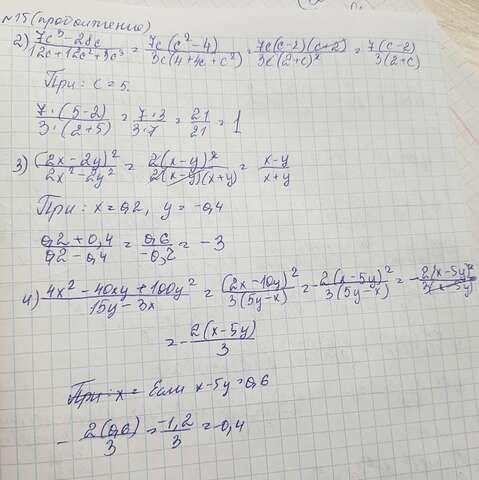 №15 (продолжение)
2) (7c³ - 28c)/(12c + 12c² + 3c³) = 7c(c² - 4)/3c(4 + 4c + c²) = 7c(c - 2)(c + 2)/3c(2 + c)² = 7(c - 2)/3(2 + c)
При: c = 5.
7·(5 - 2)/3·(2 + 5) = 7·3/3·7 = 21/21 = 1
3) (2x - 2y)²/(2x² - 2y²) = 2(x - y)²/2(x - y)(x + y) = (x - y)/(x + y)
При: x = 0,2, y = -0,4
(0,2 + 0,4)/(0,2 - 0,4) = 0,6/-0,2 = -3
4) (4x² - 40xy + 100y²)/(15y - 3x) = (2x - 10y)²/3(5y - x) = -2(x - 5y)²/3(5y - x) = -2(x - 5y)²/3(x - 5y)
= -2(x - 5y)/3
При: x = Если x - 5y = 0,6
-2(0,6)/3 = -1,2/3 = -0,4